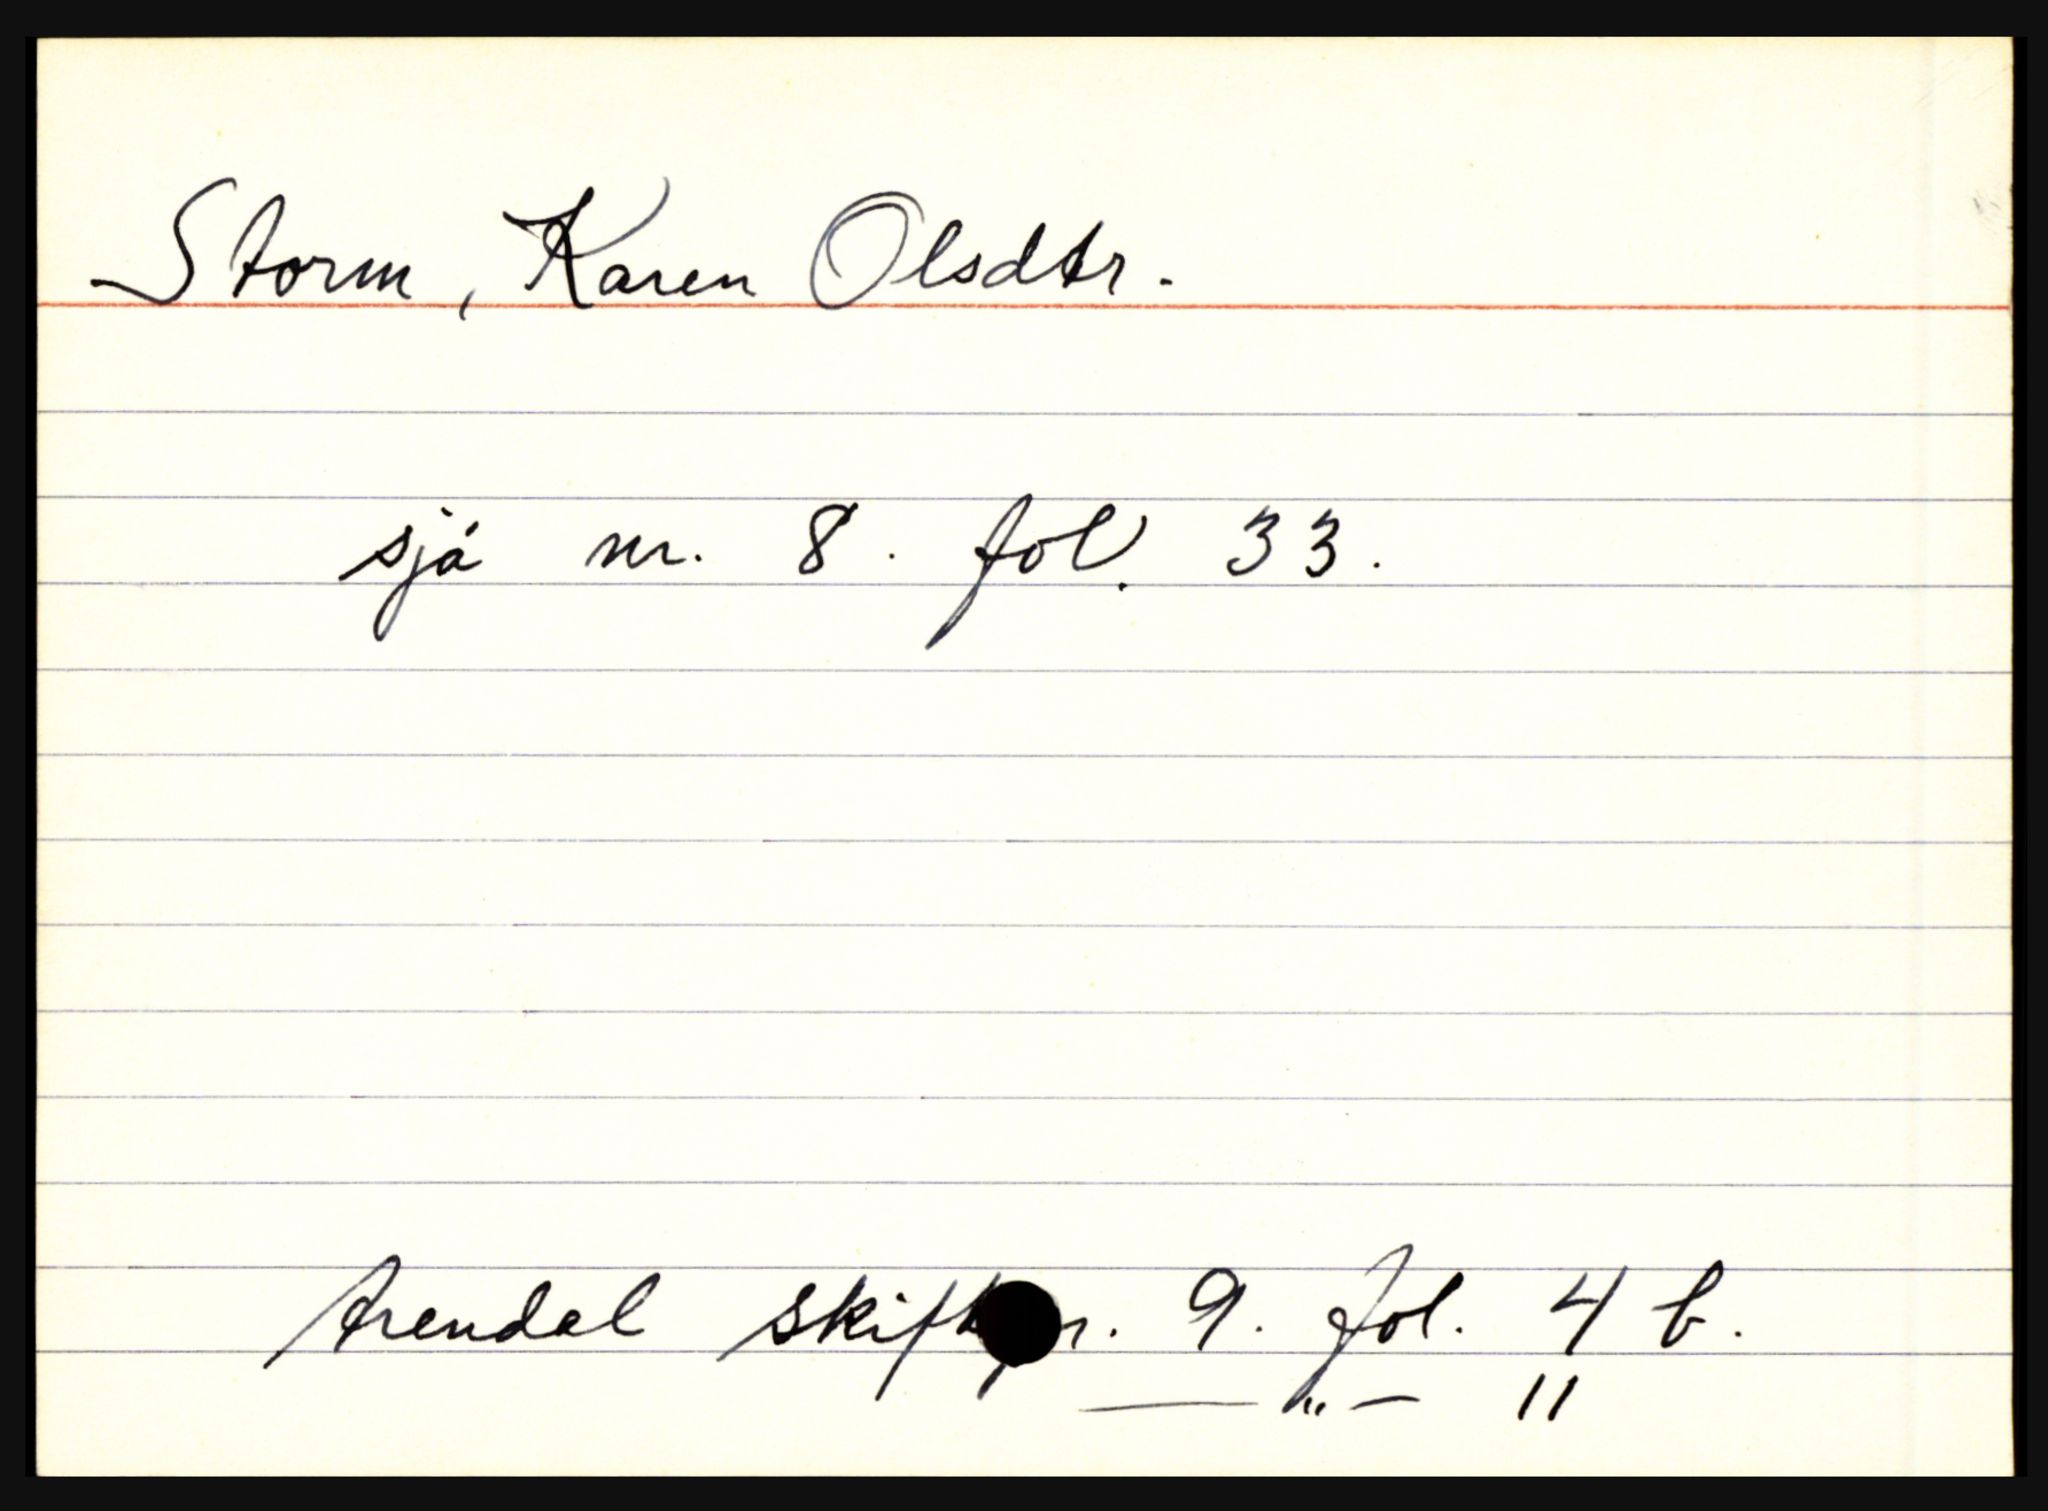 Storm, Karen Olsdtr.
sjå nr. 8. fol. 33.
Arendal skiftpr. 9. fol. 4 b.
— " — 11